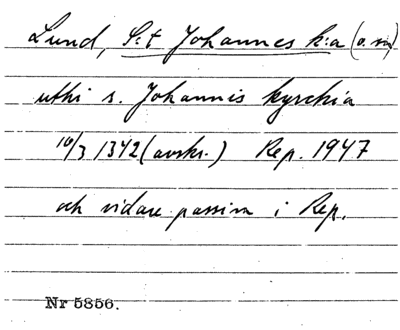 Lund, S:t Johannes k:a (o. sn)
uthi s. Johannis kyrchia
10/3 1342 (avskr.) Rep. 1947
och vidare passim i Rep.
Nr 5856.